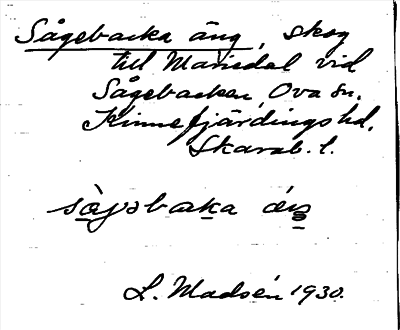 Sågebacka äng, skog
till Mariedal vid
Sågebacken, Ova sn.
Kinnefjärdings hd.
Skarab. l.
L. Madsén 1930.